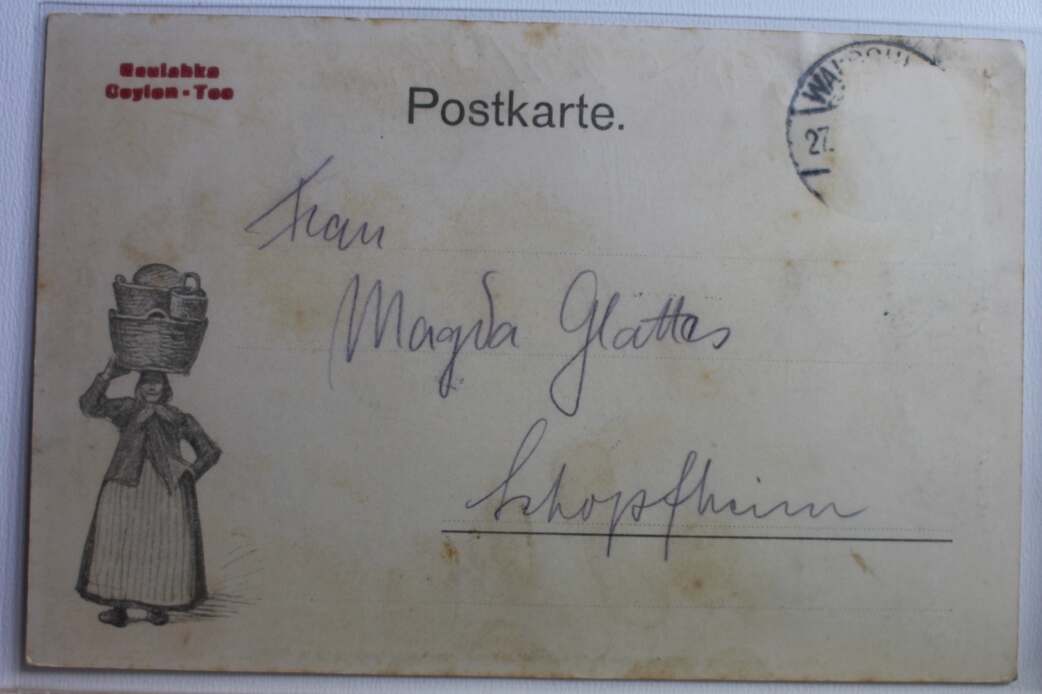 Goulabka
Ceylon-Tee
Postkarte.
27.
Frau
Magda Glattes
Schopfheim